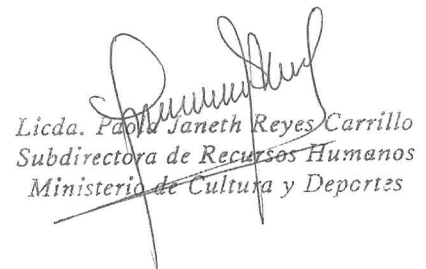 Licda. Paola Janeth Reyes Carrillo
Subdirectora de Recursos Humanos
Ministerio de Cultura y Deportes